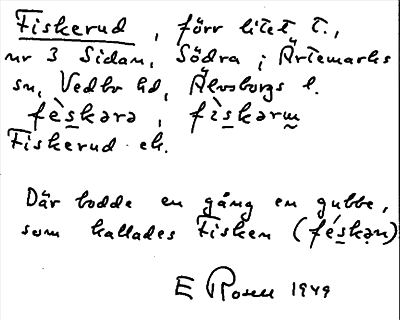 Fiskerud, förr litet t.,
nr 3 Sidan, Södra i Ärtemarks
sn, Vedbo hd, Älvsborgs l.
fè̱skərə, fìskərm̰
Fiskerud ek.
Där bodde en gång en gubbe,
som kallades Fisken (féskən)
E Rosell 1949